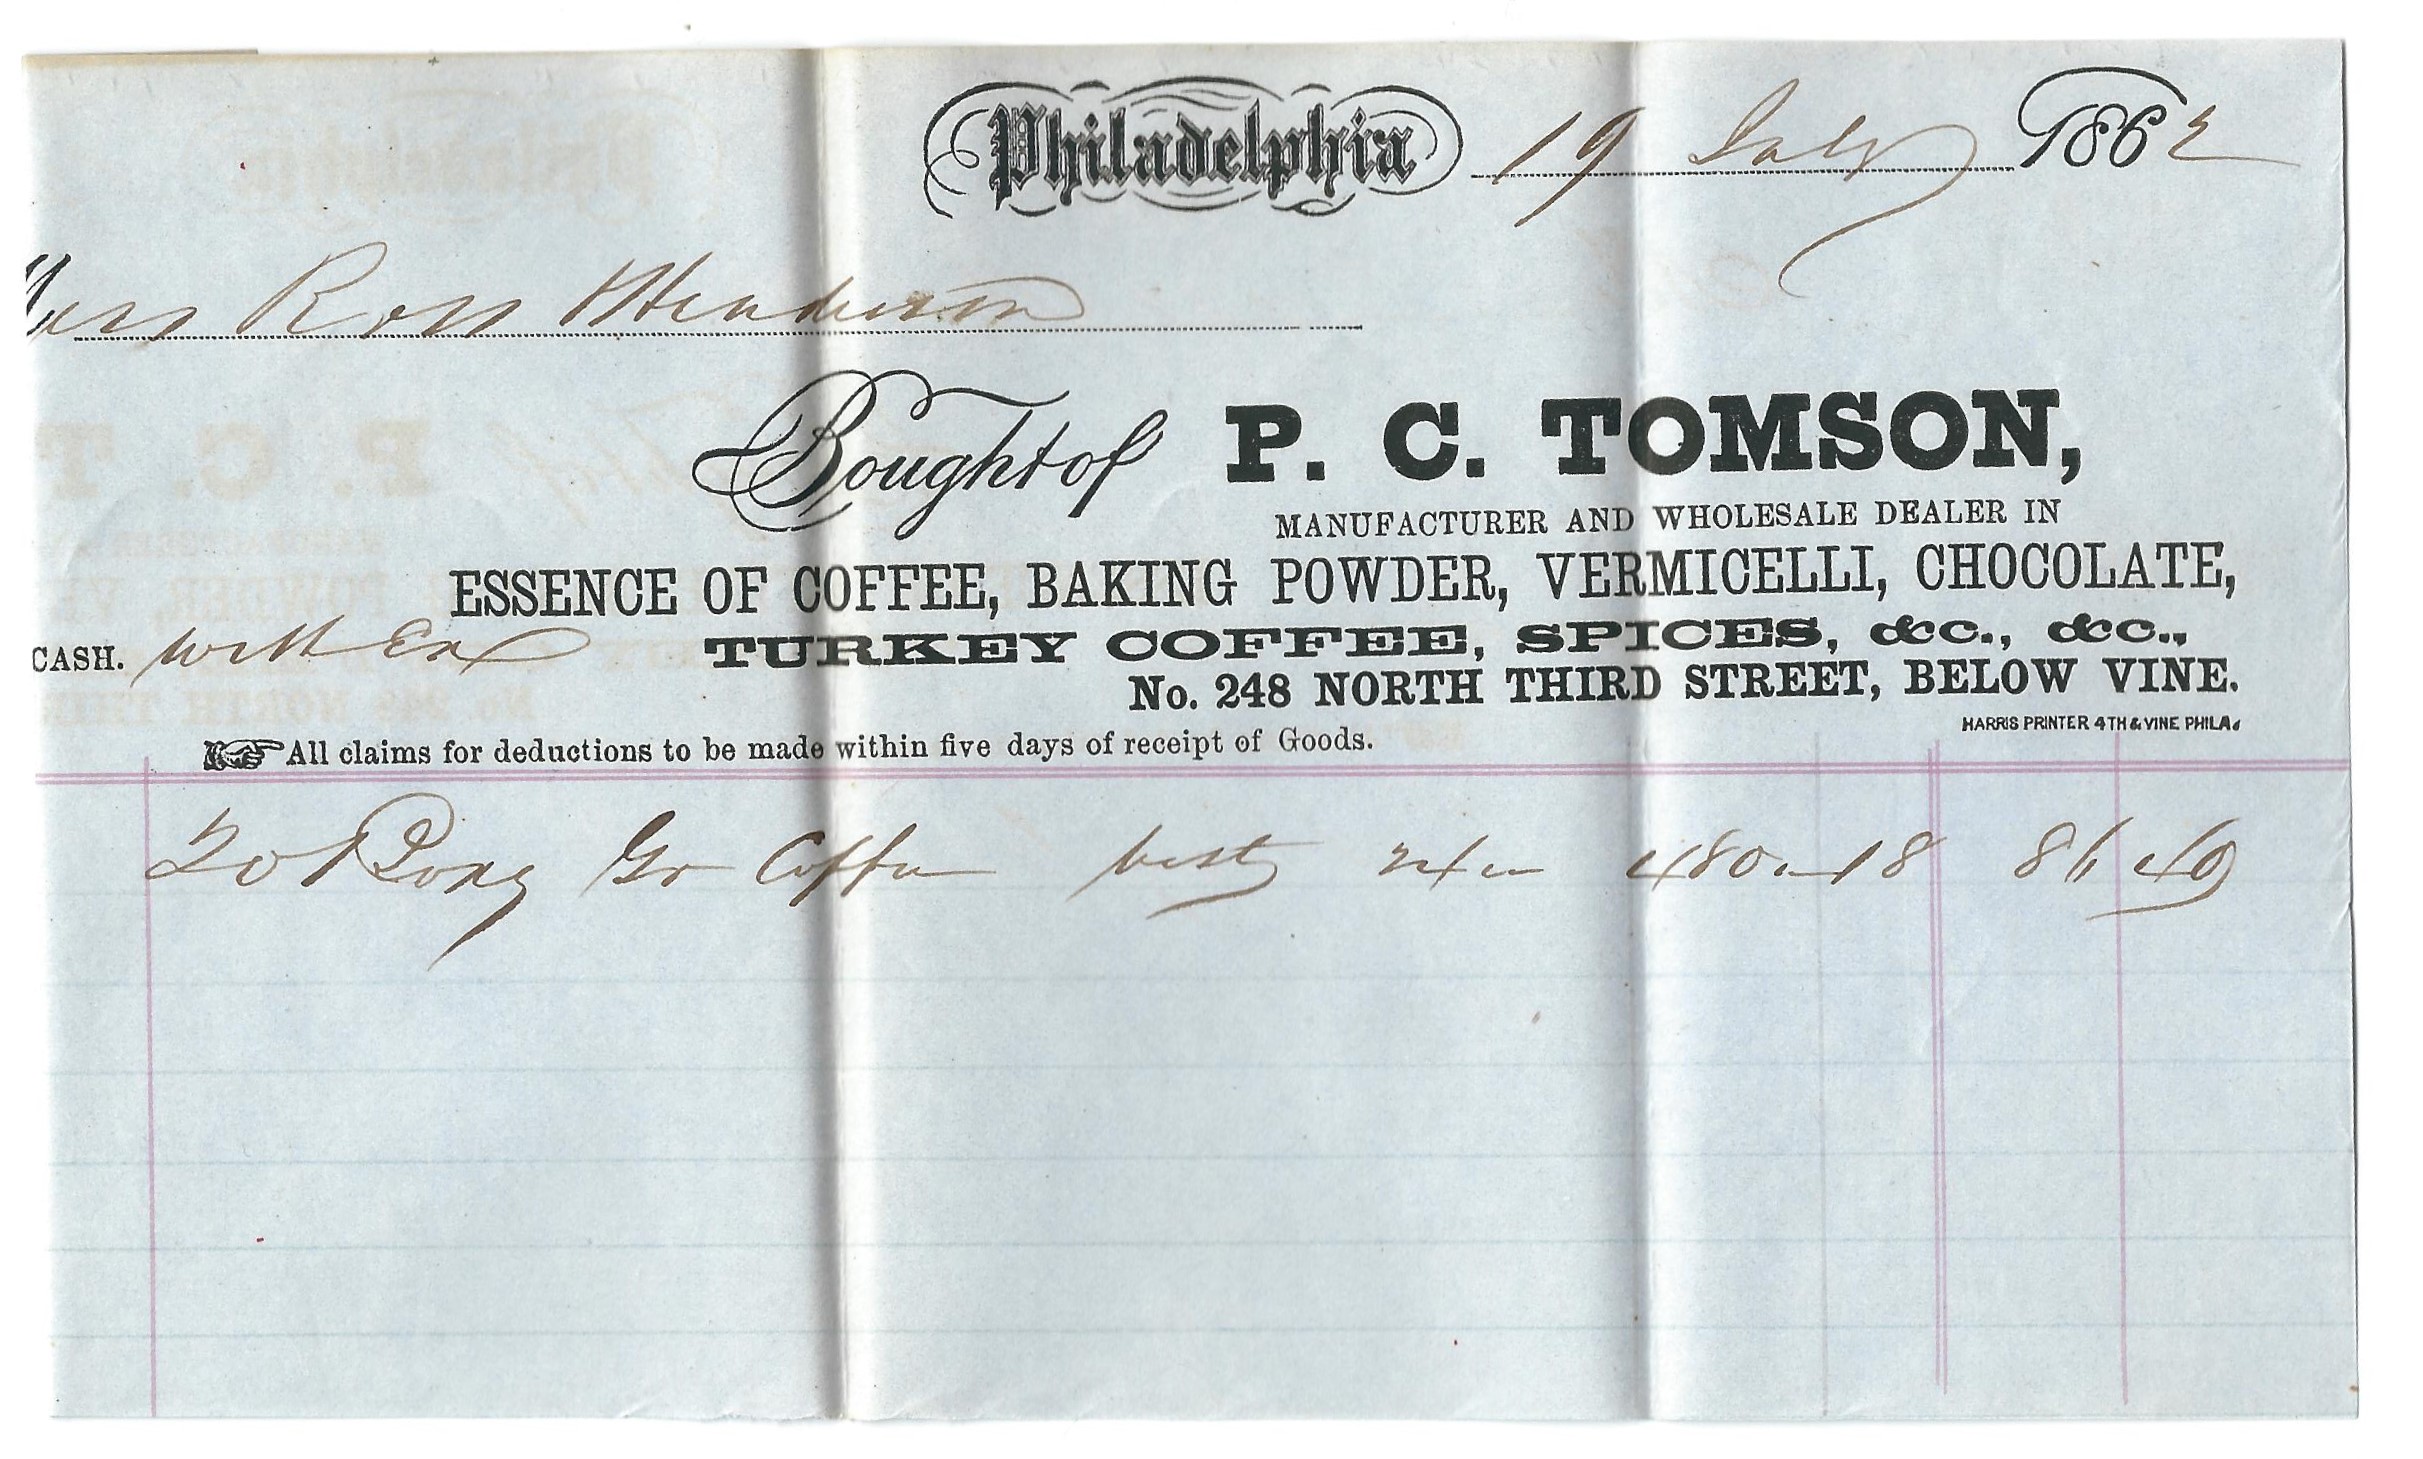 Philadelphia 19 July 1862
Mess Ross Henderson
Bought of P. C. TOMSON,
MANUFACTURER AND WHOLESALE DEALER IN
ESSENCE OF COFFEE, BAKING POWDER, VERMICELLI, CHOCOLATE,
CASH. TURKEY COFFEE, SPICES, &c., &c.,
No. 248 NORTH THIRD STREET, BELOW VINE.
HARRIS PRINTER 4TH & VINE PHILA.
All claims for deductions to be made within five days of receipt of Goods.
20 Gr Coffee best 24 480 18 86 40